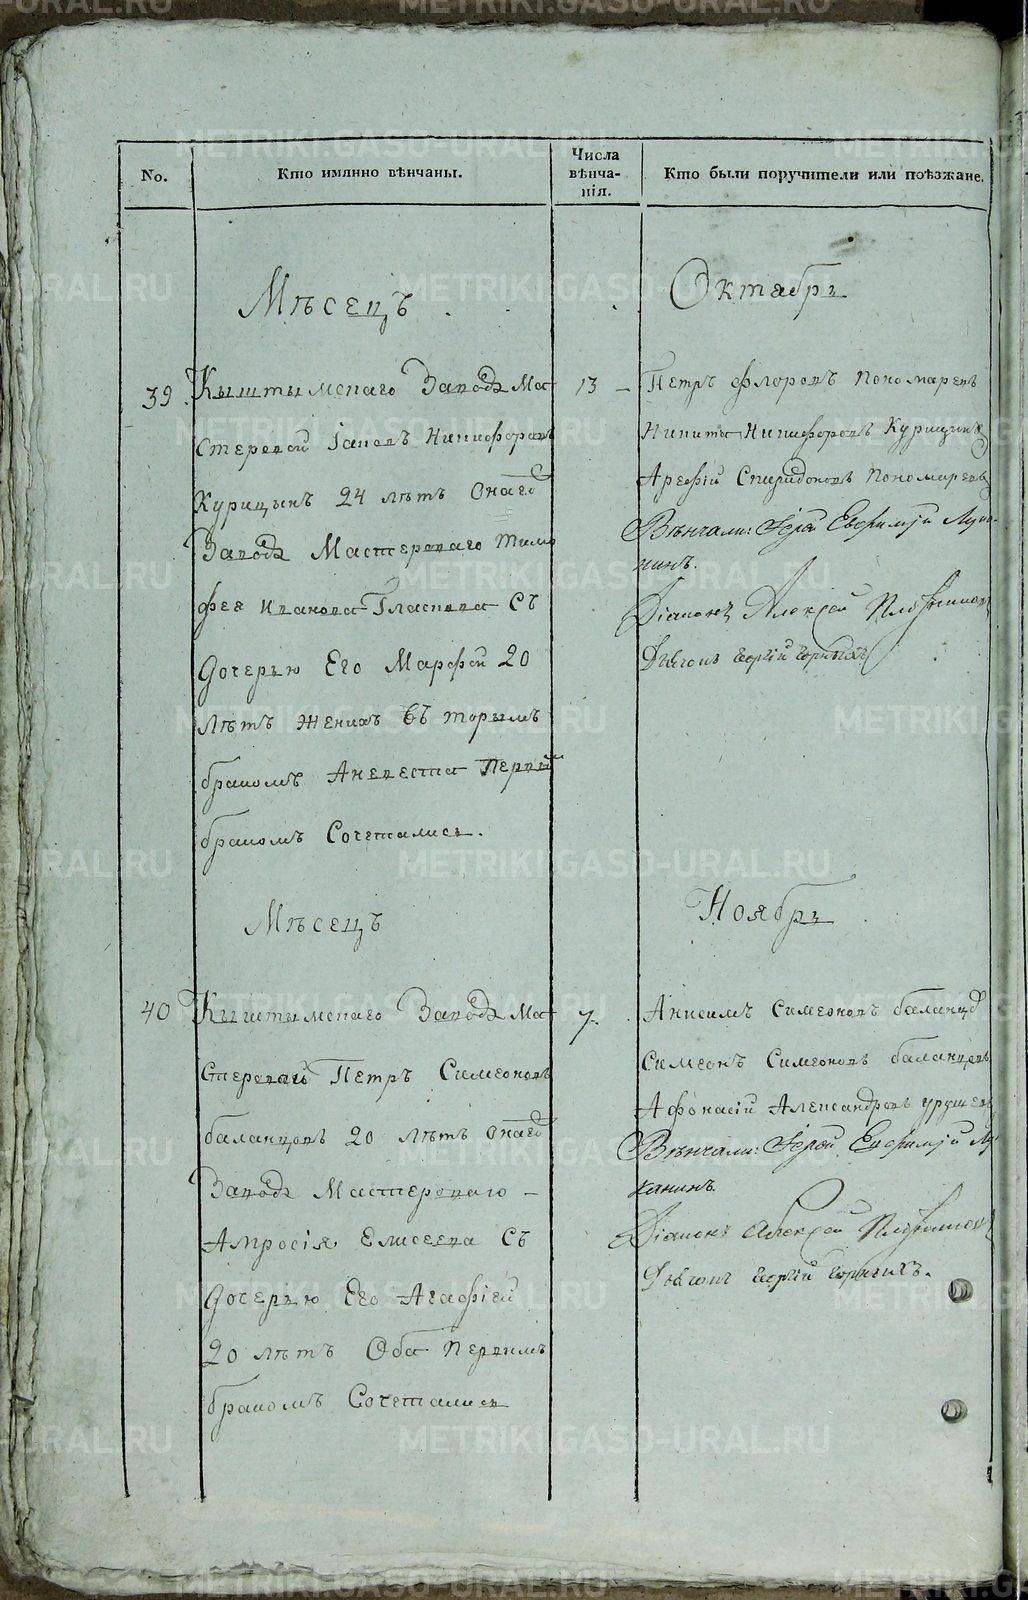 No.
Кто имянно вѣнчаны.
Числа
вѣнча-
нія.
Кто были поручители или поѣзжане.
Мѣсецъ
Октабрь
39.
Кыштымскаго Завода Ма
стеровой Іаковъ Никифоровъ
Курицынъ 24 лѣтъ Онаго
Завода Мастероваго Тимо
фея Иванова Гласкова Съ
Дочерью Его Марфой 20
лѣтъ Женихъ вторымъ
бракомъ Аневеста Первый
бракомъ Сочетались.
13 –
Петръ Флоровъ Пономаревъ
Никита Никифоровъ Курицынъ
Арефій Спиридоновъ Пономаревъ
Вѣнчали: Іерей Евфимій Лука-
нинъ.
Діаконъ Алексѣй
Дьячокъ Георгій
Мѣсецъ
Ноябрь
40
Кыштымскаго Завода Ма
Стеровый Петръ Симеоновъ
баланцовъ 20 лѣтъ Онаго
Завода Мастероваго –
Амросія Елисеева Съ
Дочерью Его Агафіей
20 лѣтъ Оба Первымъ
бракомъ Сочетались
7.
Анисимъ Симеоновъ баланцо
Симеонъ Симеоновъ баланцовъ
Афонасій Александровъ
Вѣнчали: Іерей Евфимій Лу
канинъ.
Діаконъ Алексѣй
Дьячокъ Георгій
METRIKI.GASO-URAL.RU